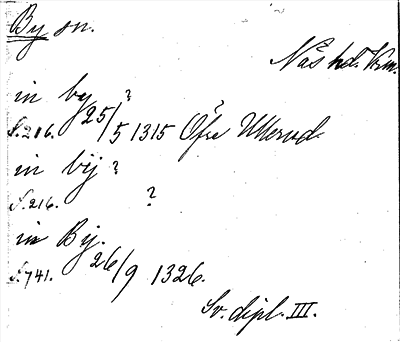 By sn.
Näs hd. Vrm.
in by ?
s. 216. 25/5 1315 Öfre Ullerud.
in bij ?
s. 216. ?
in Bij.
s. 741. 26/9 1326.
Sv. dipl. III.